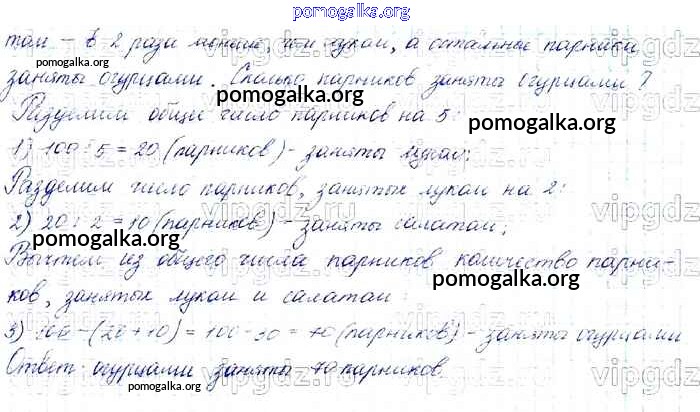 pomogalka.org
том – в 2 раза меньше, чем луком, а остальные парники
заняты огурцами. Сколько парников заняты огурцами?
pomogalka.org
Разделим общее число парников на 5:
pomogalka.org
1) 100 : 5 = 20 (парников) - заняты луком;
Разделим число парников, занятых луком на 2:
vipgdz.ru
2) 20 : 2 = 10 (парников) - заняты салатом;
pomogalka.org
Вычтем из общего числа парников количество парни-
pomogalka.org
ков, занятых луком и салатом:
3) 100 - (20 + 10) = 100 - 30 = 70 (парников) - заняты огурцами
Ответ: огурцами заняты 70 парников.
pomogalka.org